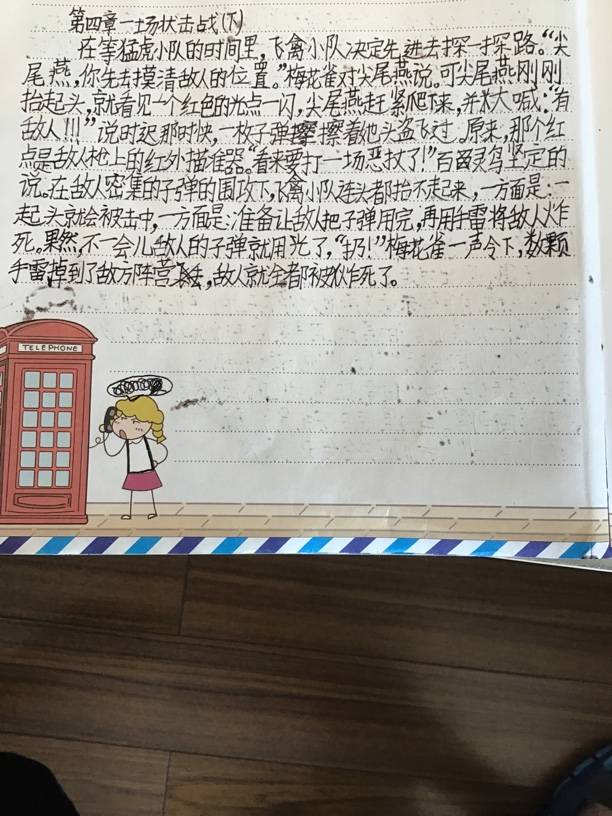 第四章一场伏击战(下)
在等猛虎小队的时间里,飞禽小队决定先进去探一探路。“尖
尾燕,你先去摸清敌人的位置。”梅花雀对尖尾燕说。可尖尾燕刚刚
抬起头,就看见一个红色的光点一闪,尖尾燕赶紧爬下来,并大喊:“有
敌人!!!”说时迟那时快,一枚子弹擦着他头盔飞过。原来,那个红
点是敌人枪上的红外描准器。“看来要打一场恶仗了!”百灵鸟坚定的
说。在敌人密集的子弹的围攻下,飞禽小队连头都抬不起来,一方面是:一
起头就会被击中,一方面是:准备让敌人把子弹用完,再用手雷将敌人炸
死。果然,不一会儿敌人的子弹就用光了,“扔!”梅花雀一声令下,数颗
手雷掉到了敌方阵营,敌人就全都被炸死了。
TELEPHONE